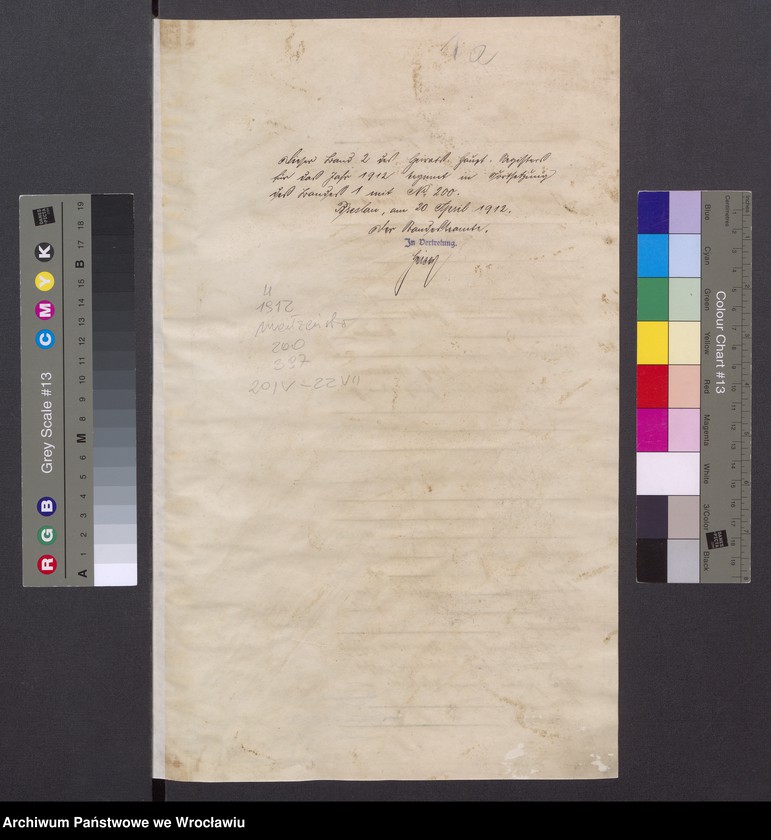 1 a
Dieser Band 2 des Heirats-Haupt-Registers
für das Jahr 1912 beginnt in Fortsetzung
des Bandes 1 mit Nr. 200.
Breslau, am 20. April 1912.
Der Standesbeamte.
In Vertretung.
II
1912
małżeństw
200
397
20 IV - 22 VII
Grey Scale #13
R G B
C M Y K
A 1 2 3 4 5 6 M 8 9 10 11 12 13 14 15 B 17 18 19
Colour Chart #13
Blue
Cyan
Green
Yellow
Red
Magenta
White
3/Color
Black
Centimetres
Inches
Archiwum Państwowe we Wrocławiu